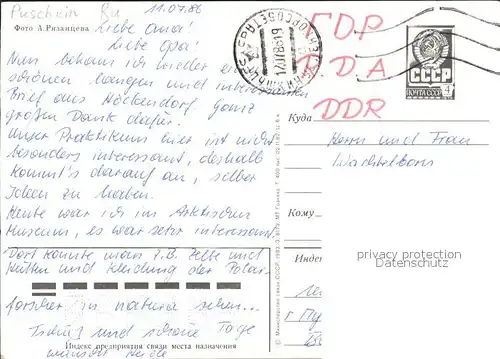 Puschkin Ru 11.07.86
Фото А. Рязанцева
Liebe Oma!
Liebe Opa!
Nun bekam ich wieder einen
schönen langen und interessanten
Brief aus Höckendorf. Ganz
großen Dank dafür.
Unser Praktikum hier ist nicht
besonders interessant, deshalb
kommt's darauf an, selber
Ideen zu haben.
Heute war ich im Arktischen
Museum, es war sehr interessant.
Dort konnte man z.B. Zelte und
Hütten und Kleidung der Polar-
forscher in natura sehen...
Tschüß und schöne Tage
wünscht
Индекс предприятия связи места назначения
© Министерство связи СССР. 1983
GDR
R.D.A
DDR
СССР
ПОЧТА СССР
4
Куда
Herrn und Frau
Wachtelborn
Кому
privacy protection
Datenschutz
Индекс